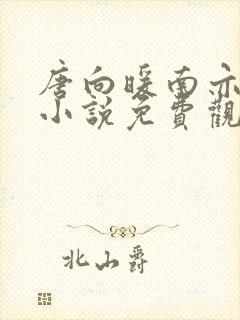 唐向暖南亦
小说免費觀
北山爵